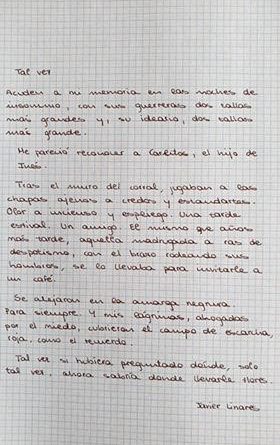 Tal vez
Acuden a mi memoria en las noches de
insomnio, con sus guerreras dos tallas
más grandes y, su ideario, dos tallas
más grande.
Me pareció reconocer a Carlitos, el hijo de
Inés.
Tras el muro del corral, jugaban a las
chapas ajenos a credos y estandartes.
Olor a incienso y espliego. Una tarde
estival. Un amigo. El mismo que años
más tarde, aquella madrugada a ras de
despotismo, con el brazo rodeando sus
hombros, se lo llevaba para invitarle a
un café.
Se alejaron en la amarga negrura.
Para siempre. Y mis lágrimas, ahogadas
por el miedo, cubrieron el campo de escarcha,
roja, como el recuerdo.
Tal vez si hubiera preguntado dónde, solo
tal vez, ahora sabría donde llevarle flores.
Javier Linares